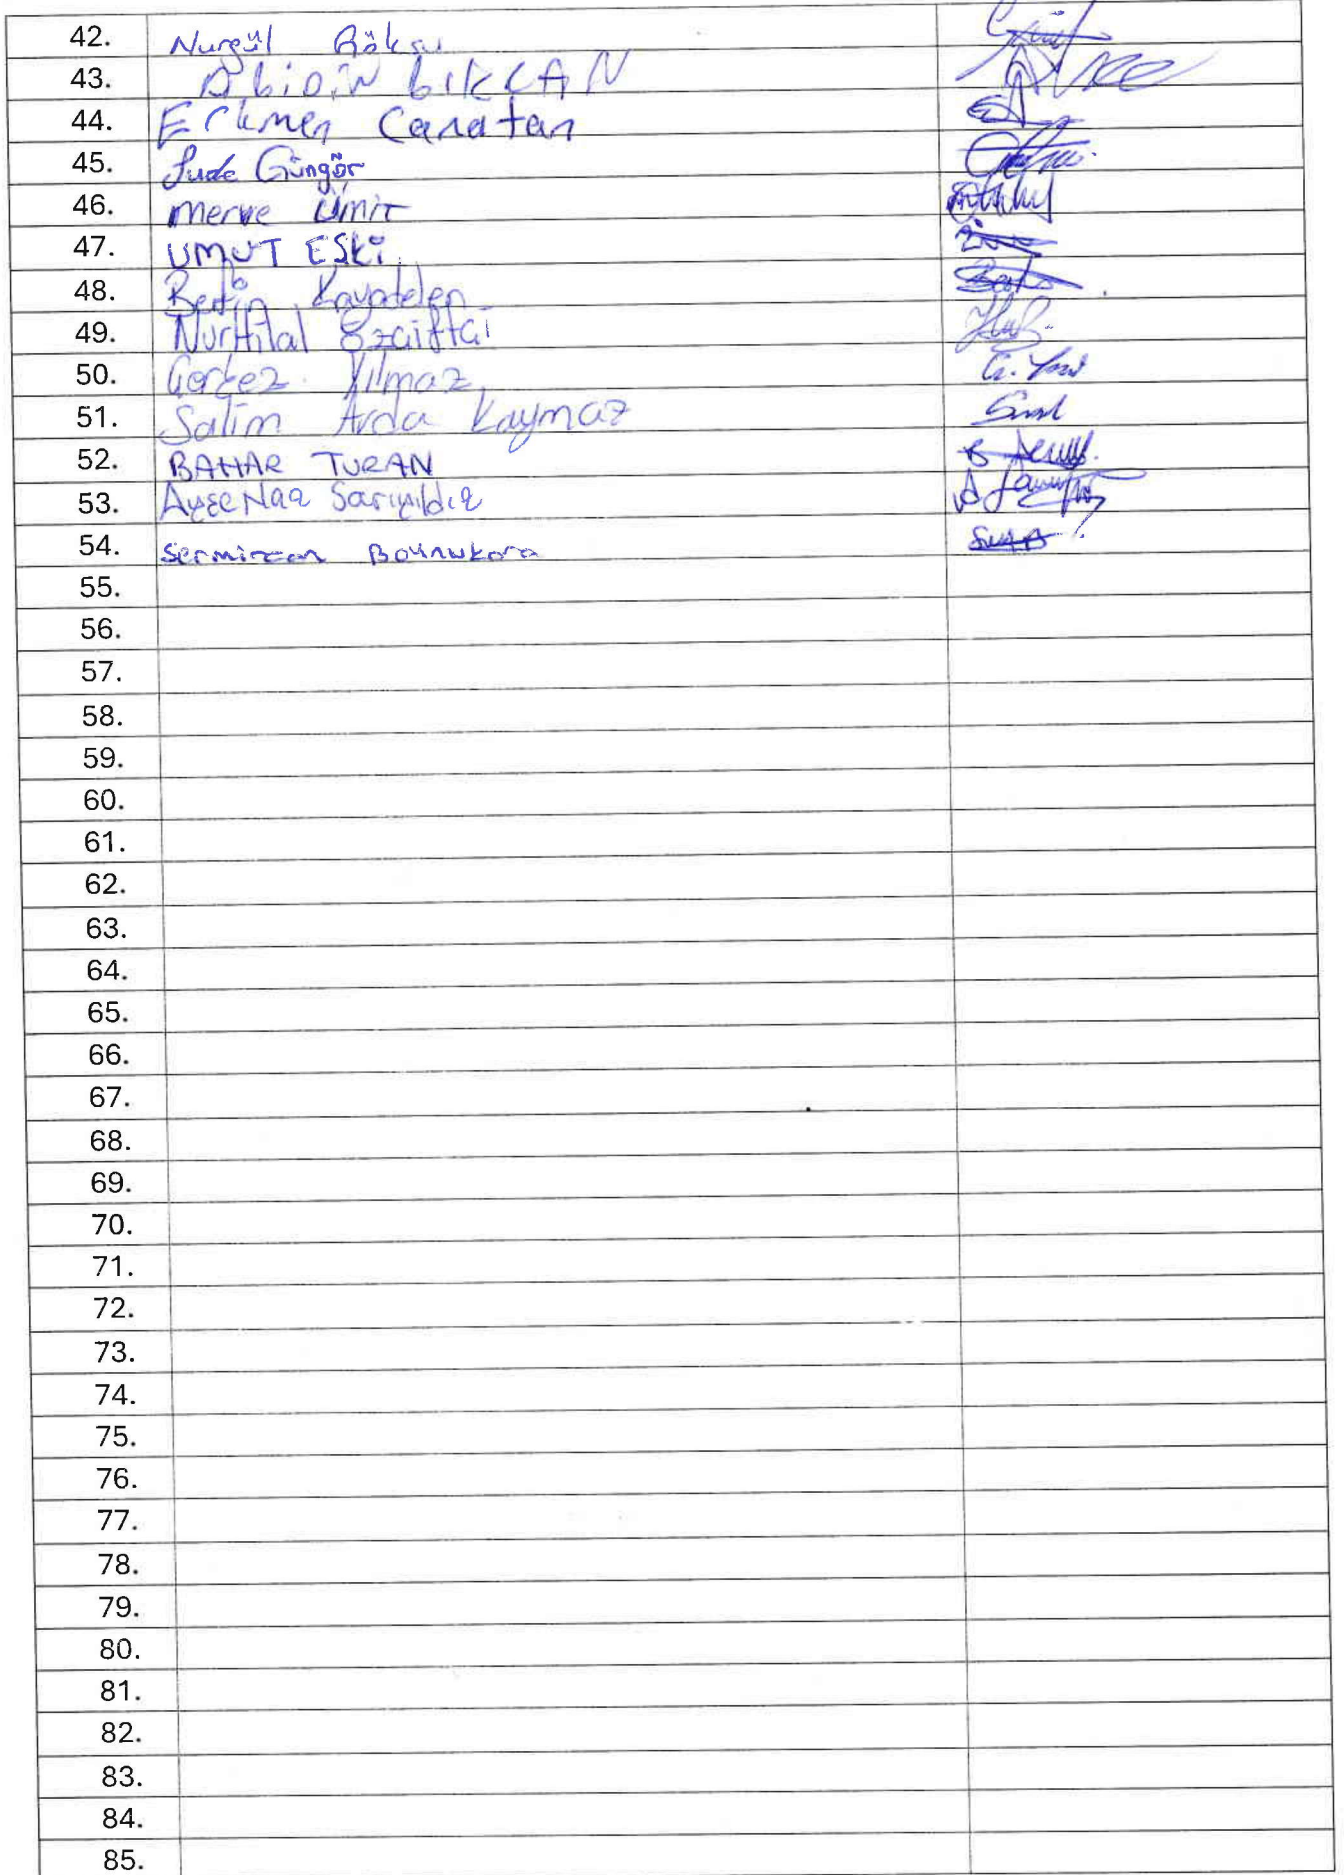 42. Nurgül Göksu
43. Abidin bıkCAN
44. Erkmen Canatan
45. Sude Güngör
46. Merve Ümit
47. UMUT ESKİ
48. Kayadelen
49. NurHilal Özçiftçi
50. Gerkez Yılmaz
51. Salim Arda Kaymaz
52. BAHAR TURAN
53. Ayşe Naz Sarıyıldız
54. Boynukara
55.
56.
57.
58.
59.
60.
61.
62.
63.
64.
65.
66.
67.
68.
69.
70.
71.
72.
73.
74.
75.
76.
77.
78.
79.
80.
81.
82.
83.
84.
85.